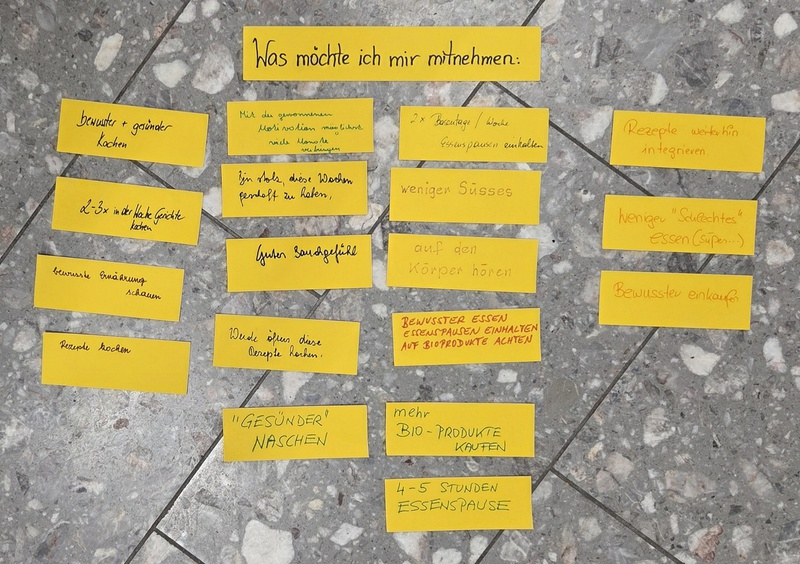 Was möchte ich mir mitnehmen:
bewusster + gesünder
Kochen
2-3x in der Woche Gerichte
kochen
bewusste Ernährung
schauen
Rezepte kochen
Mit der gewonnenen
Motivation möglichst
viele Monate
verbringen
Bin stolz, diese Wochen
geschafft zu haben,
Gutes Bauchgefühl
Werde öfters diese
Rezepte kochen.
"GESÜNDER"
NASCHEN
2x Basentage / Woche
Essenspausen einhalten
weniger Süsses
auf den
Körper hören
BEWUSSTER ESSEN
ESSENSPAUSEN EINHALTEN
AUF BIOPRODUKTE ACHTEN
mehr
BIO-PRODUKTE
KAUFEN
4-5 STUNDEN
ESSENSPAUSE
Rezepte weiterhin
integrieren
Weniger "Schlechtes"
essen (süßes...)
Bewusster einkaufen